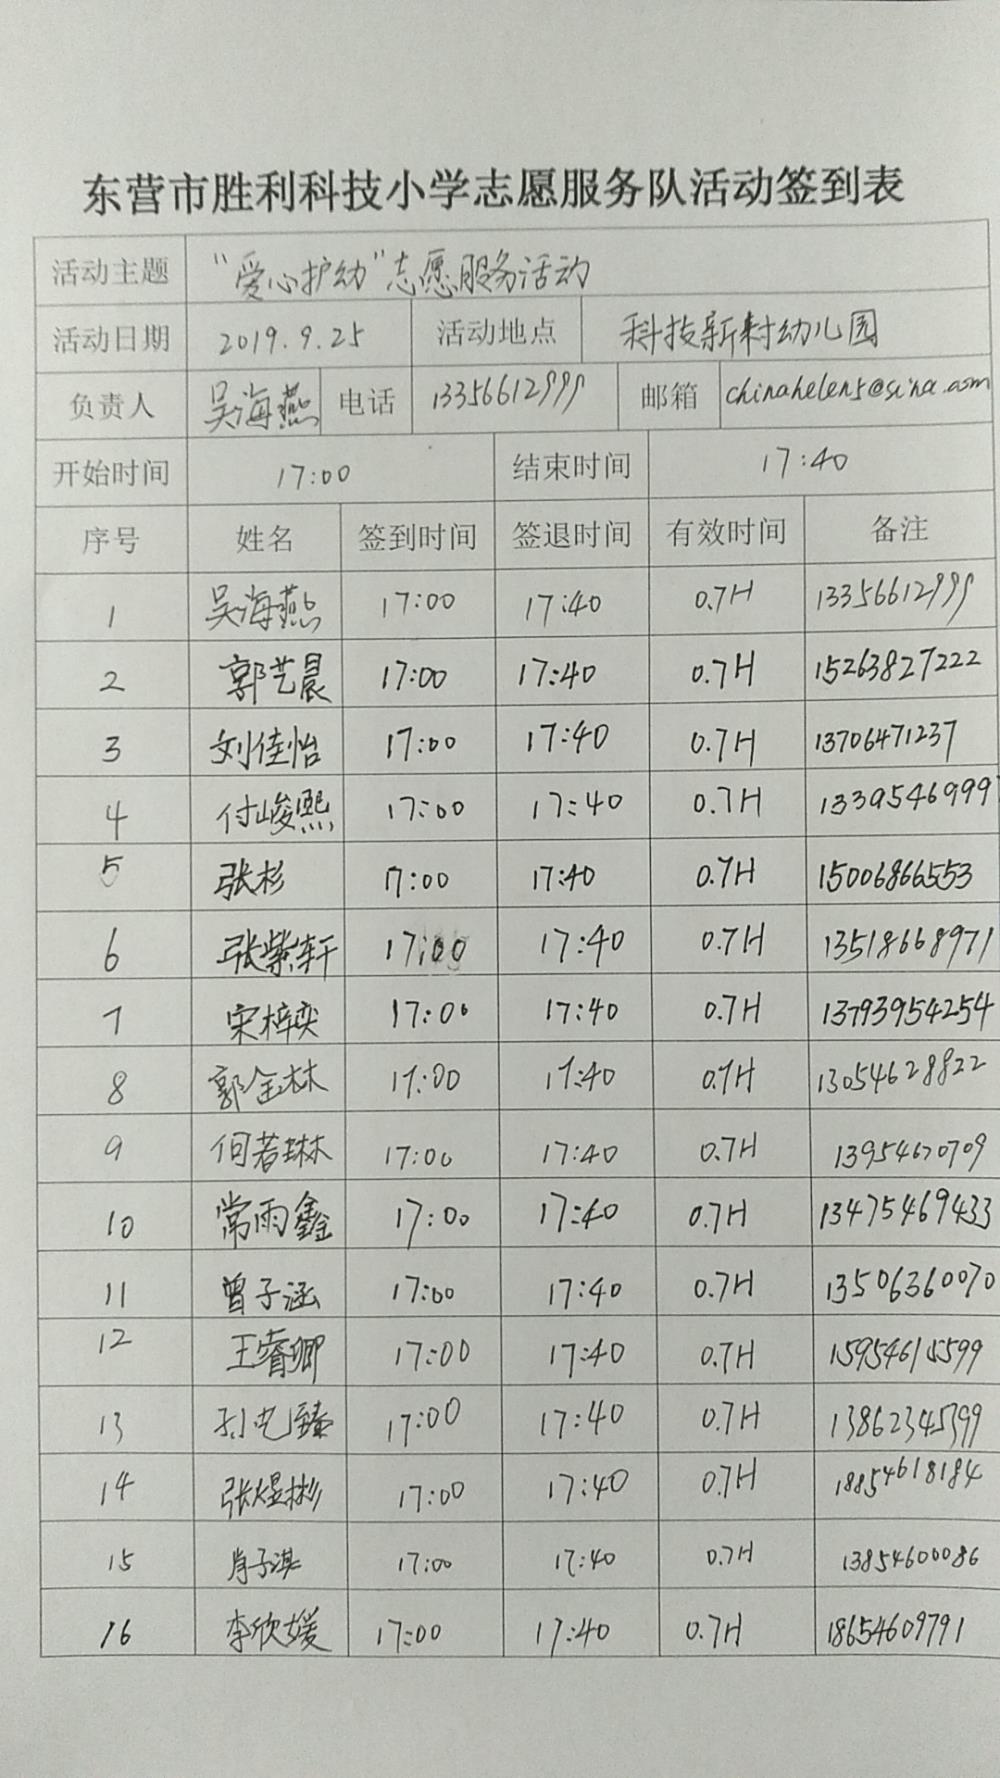 东营市胜利科技小学志愿服务队活动签到表
活动主题 “爱心护幼”志愿服务活动
活动日期 2019.9.25 活动地点 科技新村幼儿园
负责人 吴海燕 电话 13356612999 邮箱 chinahelen5@sina.com
开始时间 17:00 结束时间 17:40
序号 姓名 签到时间 签退时间 有效时间 备注
1 吴海燕 17:00 17:40 0.7H 13356612999
2 郭艺晨 17:00 17:40 0.7H 15263827222
3 刘佳怡 17:00 17:40 0.7H 13706471237
4 付峻熙 17:00 17:40 0.7H 13395469997
5 张杉 17:00 17:40 0.7H 15006866553
6 张紫轩 17:00 17:40 0.7H 13518668971
7 宋梓奕 17:00 17:40 0.7H 13793954254
8 郭金林 17:00 17:40 0.7H 13054628822
9 何若琳 17:00 17:40 0.7H 13954670709
10 常雨鑫 17:00 17:40 0.7H 13475469433
11 曾子涵 17:00 17:40 0.7H 13506360070
12 王睿卿 17:00 17:40 0.7H 15954615599
13 17:00 17:40 0.7H 13862345399
14 张煜彬 17:00 17:40 0.7H 18854618184
15 肖子淇 17:00 17:40 0.7H 13854600086
16 李欣媛 17:00 17:40 0.7H 18654609791